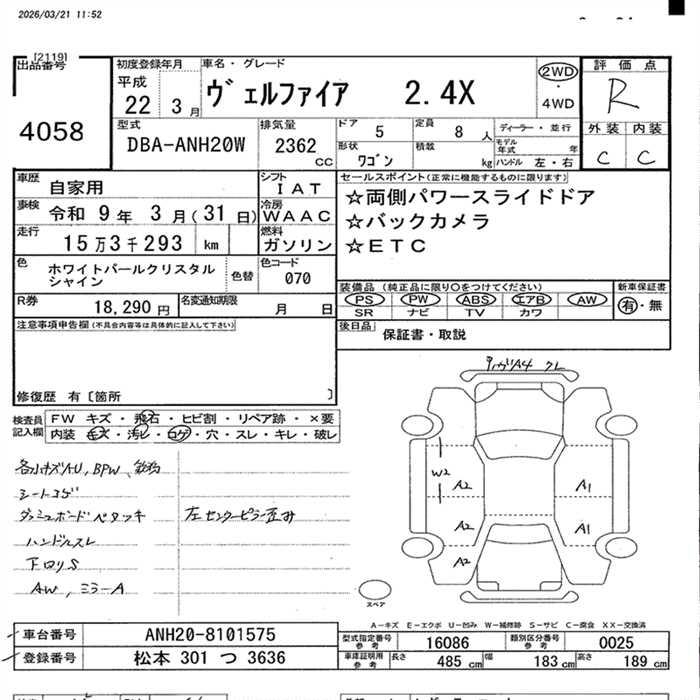 2026/03/21 11:52
[2119]
出品番号
4058
初度登録年月
平成
22 3月
車名・グレード
ヴェルファイア 2.4X
2WD
・
4WD
評価点
R
外装 内装
C C
型式
DBA-ANH20W
排気量
2362 cc
ドア 5
定員 8人
ディーラー・並行
形状
ワゴン
積載 kg
モデル年式 年
ハンドル 左・右
車歴
自家用
シフト
IAT
車検
令和 9年 3月(31日)
冷房
WAAC
走行
15万3千293 km
燃料
ガソリン
色
ホワイトパールクリスタルシャイン
色替
色コード
070
R券
18,290円
名変通知期限
月 日
セールスポイント(正常に機能するものに限ります)
☆両側パワースライドドア
☆バックカメラ
☆ETC
装備品(純正品に限り〇をつけてください)
PS PW ABS エアB AW
SR ナビ TV カワ
新車保証書
有・無
後日品
保証書・取説
注意事項申告欄(不具合内容等は具体的に記入して下さい)
修復歴 有〔箇所 〕
検査員
記入欄
FW キズ・飛石・ヒビ割・リペア跡・×要
内装 キズ・汚レ・コゲ・穴・スレ・キレ・破レ
各小キズAU, BPW、
シートコゲ
ダッシュボードベタツキ
ハンドルスレ
下回りS
AW, ミラーA
左センターピラー歪み
W2
A2
A2
A2
A1
A1
スペア
A-キズ E-エクボ U-凹み W-補修跡 S-サビ C-腐食 XX-交換済
車台番号
ANH20-8101575
登録番号
松本 301 つ 3636
型式指定番号
参考
16086
類別区分番号
参考
0025
車庫証明用
参考
長さ 485 cm
幅 183 cm
高さ 189 cm